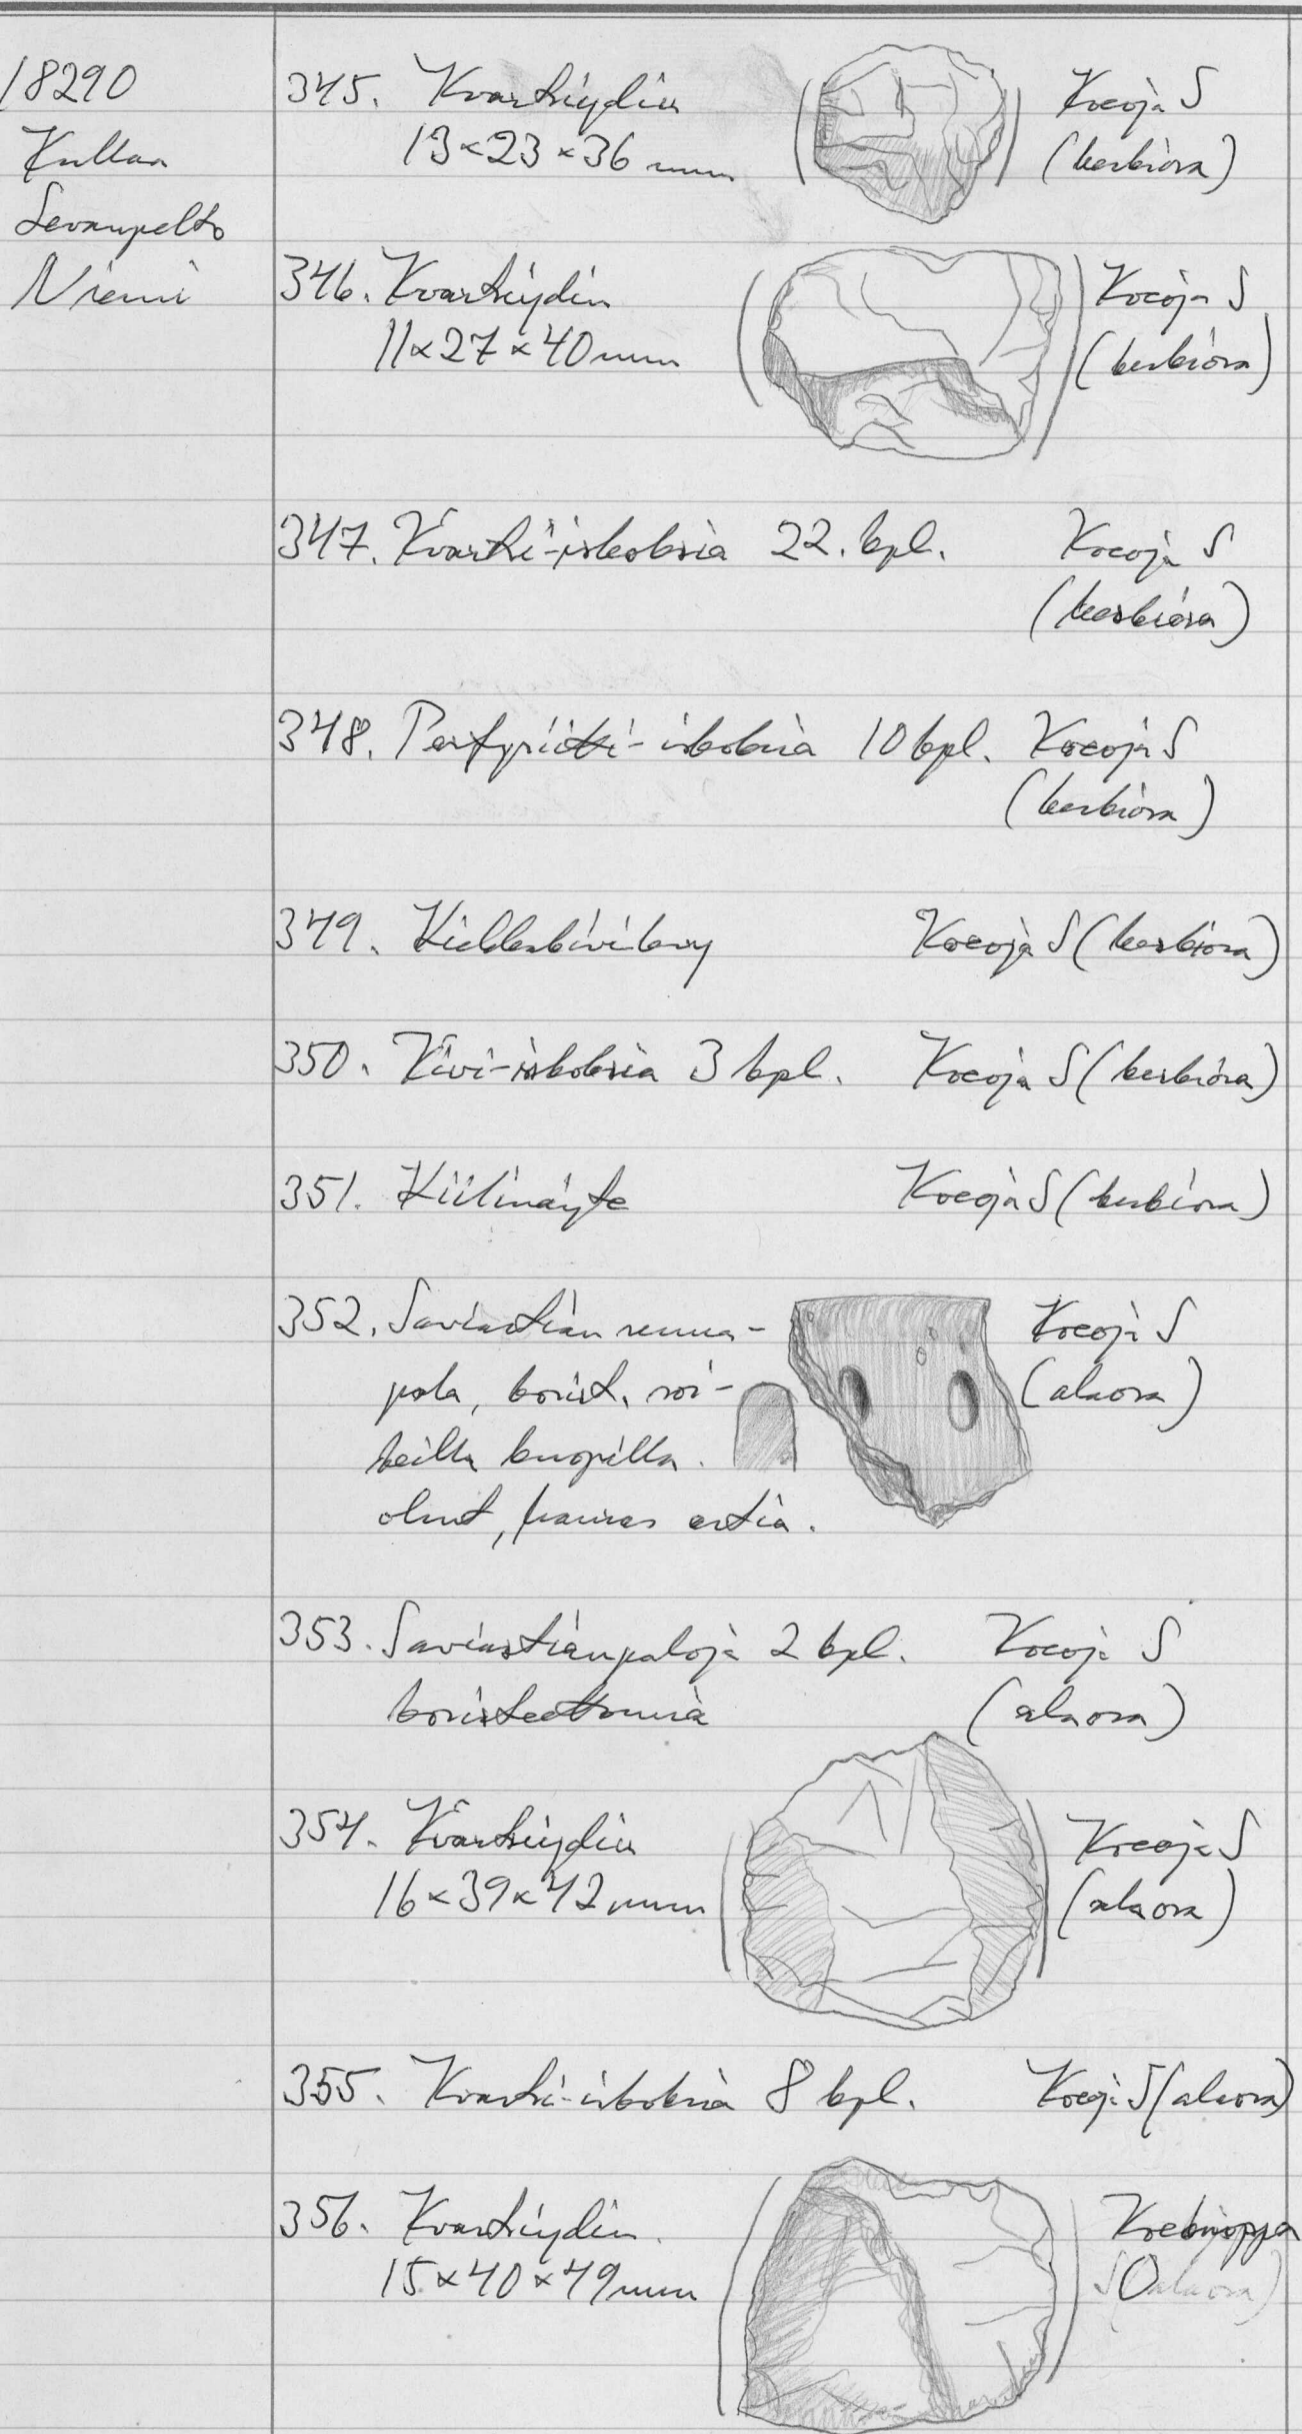 18290
Kullaa
Levanpelto
Niemi
345. Kvartsiydin
13×23×36 mm
Koeoja S
(keskiosa)
346. Kvartsiydin
11×27×40 mm
Koeoja S
(keskiosa)
347. Kvartsi-iskoksia 22. kpl.
Koeoja S
(keskiosa)
348. Porfyriitti-iskoksia 10 kpl. Koeoja S
(keskiosa)
349. Kiillekivilevy Koeoja S (keskiosa)
350. Kivi-iskoksia 3 kpl. Koeoja S (keskiosa)
351. Hiilinäyte Koeoja S (keskiosa)
352. Saviastian reuna-
pala, korist. soi-
keilla kuopilla.
ollut, paksu astia.
Koeoja S
(alaosa)
353. Saviastianpaloja 2 kpl. Koeoja S
koristeettomia (alaosa)
354. Kvartsiydin
16×39×42 mm
Koeoja S
(alaosa)
355. Kvartsi-iskoksia 8 kpl. Koeoja S (alaosa)
356. Kvartsiydin.
15×40×49 mm
Koekuoppa
O